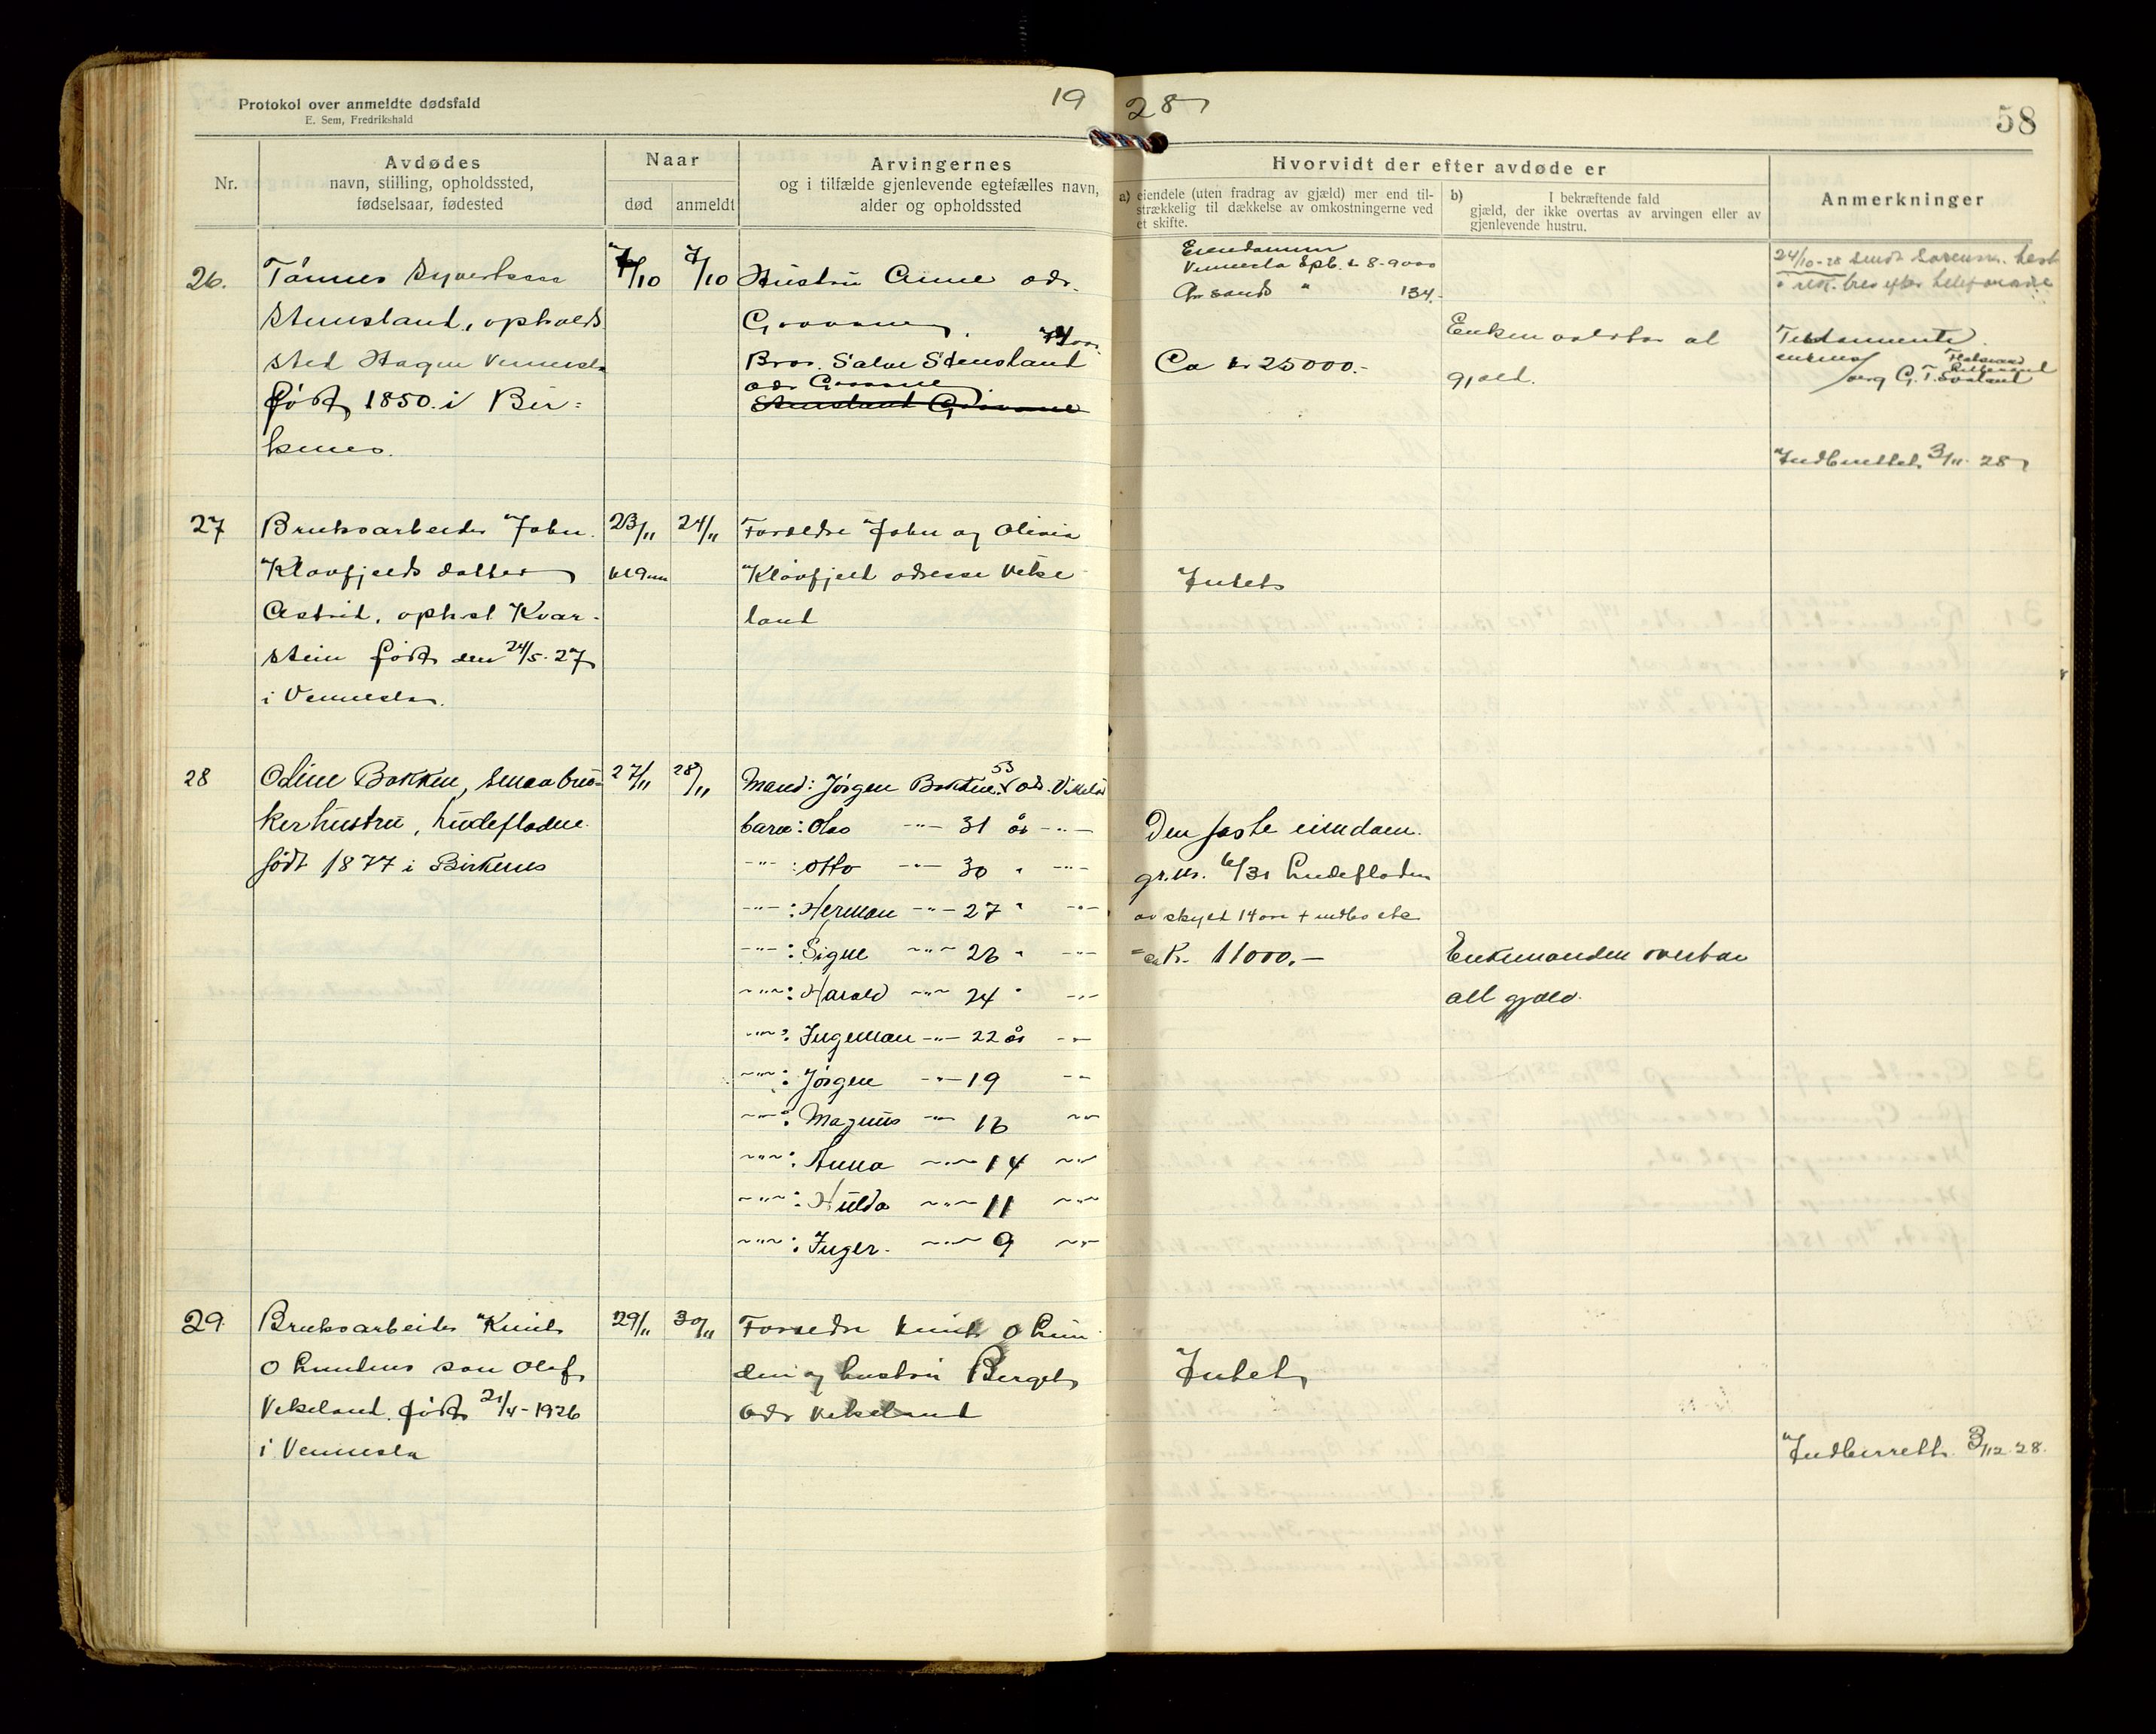 Protokol over anmeldte dødsfald
E. Sem, Fredrikshald
19 28
58
Nr.
Avdødes
navn, stilling, opholdssted,
fødselsaar, fødested
Naar
død
anmeldt
Arvingernes
og i tilfælde gjenlevende egtefælles navn,
alder og opholdssted
Hvorvidt der efter avdøde er
a) eiendele (uten fradrag av gjæld) mer end til-
strækkelig til dækkelse av omkostningerne ved
et skifte.
b) I bekræftende fald
gjæld, der ikke overtas av arvingen eller av
gjenlevende hustru.
Anmerkninger
26.
Tånnes Syvertsen
Stensland, opholds
sted Hagen Vennesla
født 1850 i Bir=
kenes.
7/10
7/10
Hustru Anne adr.
Groovane
Bror. Salve Stensland
adr Groovane
Stensland Groovane
Eiendommen
Vennesla Spb. kr 8-9000
Chr sands " 134.-
Ca kr 25000.-
Enken overtar al
gjæld.
24/10-28 sendt
Testamente
enkens
verg G. T.
Indberettet 3/11 28
27
Bruksarbeider John
Klovfjelds datter
Astrid, oph.st Kvar-
stein født den 24/5-27
i Vennesla.
23/11
kl 9
24/11
Foreldre John og Olivia
Kløvfjeld adresse Vikse
land
Intet
28
Oline Bakken, smaabru-
kerhustru, hudefladen
født 1877 i Birkenes
27/11
28/11
Mand: Jørgen Bakken 53 adr. Vikeland
barn: Olav -"- 31 år -"-
-"- : Otto -"- 30 " -"-
-"- : Herman -"- 27 " -"-
-"- : Signe -"- 26 " -"-
-"- : Harald -"- 24 " -"-
-"- : Ingeman -"- 22 år -"-
-"- : Jørgen -"- 19 -"-
-"- : Magnus -"- 16 -"-
-"- : Anna -"- 14 -"-
-"- : Hulda -"- 11 -"-
-"- : Inger -"- 9 -"-
Den faste eiendom.
gr.nr. 6/31 Hudefladen
av skyld 14 øre + indbo etc
= ca Kr. 11000.-
Enkemanden overtar
all gjæld.
29
Bruksarbeider Knut
O Lundens søn Olaf,
Vikeland født 21/4-1926
i Vennesla
29/11
30/11
Foreldre Knut O Lun
den og hustru Berget
adr Vikeland
Intet
Indberrett 3/12 28.